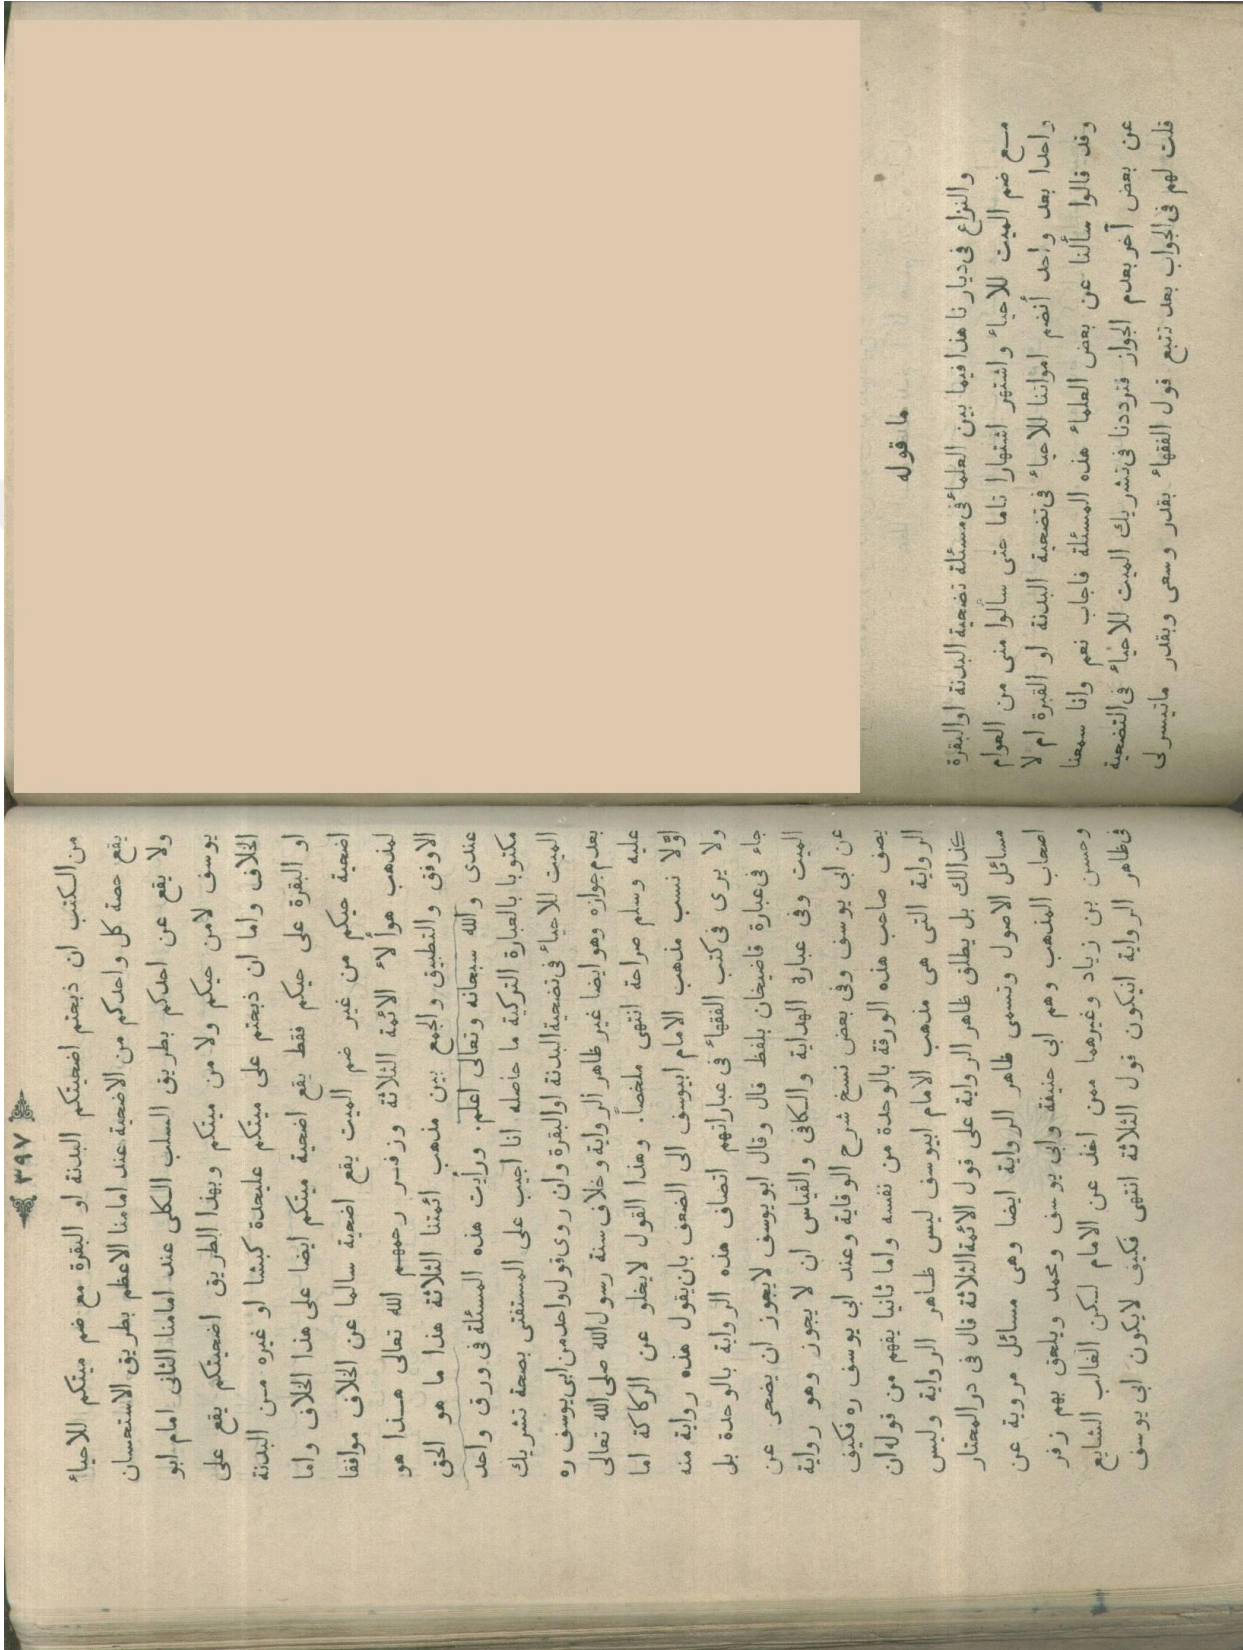 ما قوله
والنزاع فى ديارنا هذا فيما بين العلماء فى مسئلة تضحية البدنة او البقرة
مع ضم الميت للاحياء واشتهر اشتهارا تاما حتى سألوا منى من العوام
واحدا بعد واحد أنضم امواتنا للاحياء فى تضحية البدنة او القبرة ام لا
وقد قالوا سألنا عن بعض العلماء هذه المسئلة فاجاب نعم وانا سمعنا
عن بعض آخر بعدم الجواز فترددنا فى تشريك الميت للاحياء فى التضحية
قلت لهم فى الجواب بعد تتبع قول الفقهاء بقدر وسعى وبقدر ماتيسر لى
٣٩٧
من الكتب ان ذبحتم اضحيتكم البدنة او البقرة مع ضم ميتكم للاحياء
يقع حصة كل واحدكم من الاضحية عند امامنا الاعظم بطريق الاستحسان
ولا يقع عن احدكم بطريق السلب الكلى عند امامنا الثانى امام ابو
يوسف لامن حيكم ولا من ميتكم وبهذا الطريق اضحيتكم يقع على
الخلاف واما ان ذبحتم على ميتكم عليحدة كبشا او غيره من البدنة
او البقرة على حيكم فقط يقع اضحية ميتكم ايضا على هذا الخلاف واما
اضحية حيكم من غير ضم الميت يقع اضحية سالما عن الخلاف موافقا
لمذهب هوأ لاء الائمة الثلاثة وزفر رحمهم الله تعالى هذا هو
الاوفق والتطبيق والجمع بين مذهب ائمتنا الثلاثة هذا ما هو الحق
عندى والله سبحانه وتعالى اعلم. ورأيت هذه المسئلة فى ورق واحد
مكتوبا بالعبارة التركية ما حاصله انا اجيب على المستفتى بصحة تشريك
الميت للاحياء فى تضحية البدنة او البقرة وان روى قول واحد من ابى يوسف ره
بعدم جوازه وهو ايضا غير ظاهر الرواية وخلاف سنة رسول الله صلى الله تعالى
عليه وسلم صراحة انتهى ملخصاً. وهذا القول لايخلو عن الركاكة اما
اوّلا نسب مذهب الامام ابيوسف الى الضعف بان يقول هذه رواية منه
ولا يرى فى كتب الفقهاء فى عباراتهم اتصاف هذه الرواية بالوحدة بل
جاء فى عبارة قاضيخان بلفظ قال وقال ابو يوسف لايجوز ان يضحى عن
الميت وفى عبارة الهداية والكافى والقياس ان لا يجوز وهو رواية
عن ابى يوسف وفى بعض نسخ شرح الوقاية وعند ابى يوسف ره فكيف
يصف صاحب هذه الورقة بالوحدة من نفسه واما ثانيا يفهم من قوله ان
الرواية التى هى مذهب الامام ابيوسف ليس ظاهر الرواية وليس
كذالك بل يطلق ظاهر الرواية على قول الائمة الثلاثة قال فى در المختار
مسائل الاصول وتسمى ظاهر الرواية ايضا وهى مسائل مروية عن
اصحاب المذهب وهم ابى حنيفة وابى يوسف ومحمد ويلحق بهم زفر
وحسن بن زياد وغيرهما ممن اخذ عن الامام لكن الغالب الشايع
فى ظاهر الرواية ان يكون قول الثلاثة انتهى فكيف لايكون ابى يوسف